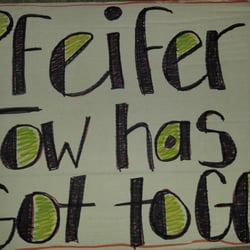 Pfeifer
Tow has
Got to Go